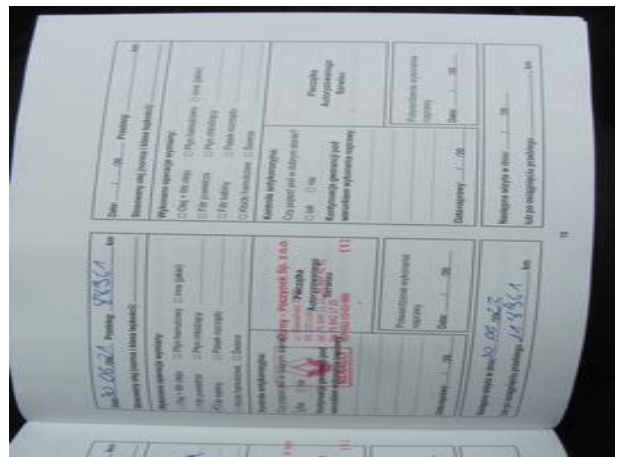 Data 30.06.21 Przebieg 88961 km
Stosowany olej (norma i klasa lepkości)
Wykonane operacje wymiany:
Olej + filtr oleju □ Płyn hamulcowy □ Inne (jakie)
Filtr powietrza □ Płyn chłodzący
Filtr kabiny □ Pasek rozrządu
□ Klocki hamulcowe □ Świece
Kontrola antykorozyjna
Pieczątka
Autoryzowanego
Serwisu
- Poczynek Sp. z o.o.
RENAULT
(1)
Potwierdzenie wykonania
naprawy
Data / /20
Data naprawy / /20
Następna wizyta w dniu 30.06.22
lub po osiągnięciu przebiegu 118961 km
Data / /20 Przebieg km
Stosowany olej (norma i klasa lepkości)
Wykonane operacje wymiany:
□ Olej + filtr oleju □ Płyn hamulcowy □ Inne (jakie)
□ Filtr powietrza □ Płyn chłodzący
□ Filtr kabiny □ Pasek rozrządu
□ Klocki hamulcowe □ Świece
Kontrola antykorozyjna
Czy pojazd jest w dobrym stanie?
□ tak □ nie
Kontynuacja gwarancji pod
warunkiem wykonania naprawy
Pieczątka
Autoryzowanego
Serwisu
Data naprawy / /20
Potwierdzenie wykonania
naprawy
Data / /20
Następna wizyta w dniu / /20
lub po osiągnięciu przebiegu km